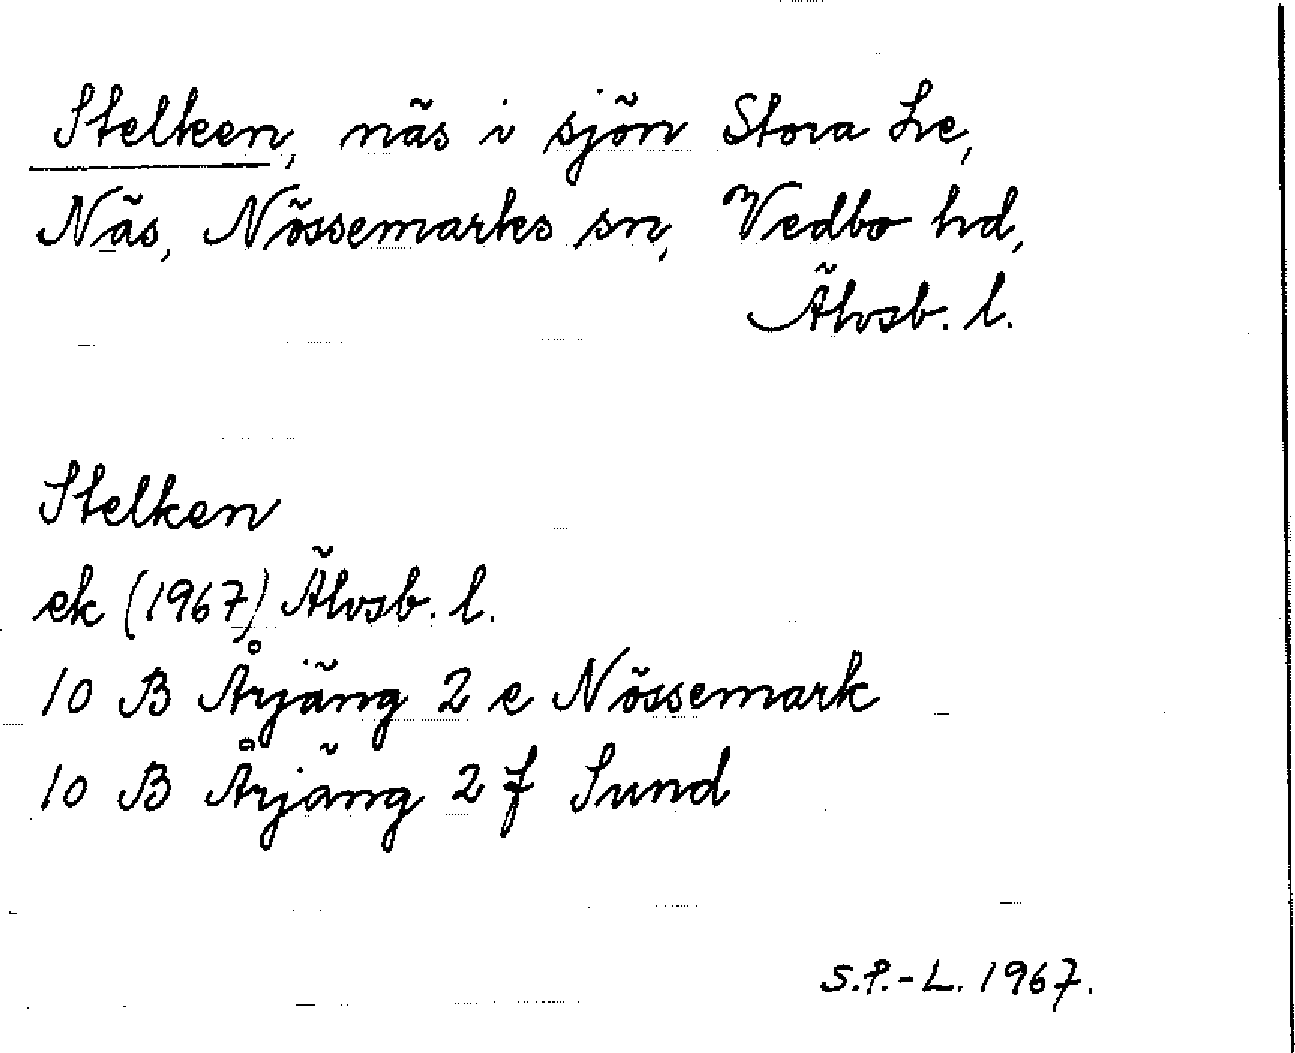 Stelken, näs i sjön Stora Le,
Näs, Nössemarks sn, Vedbo hd,
Älvsb. l.
Stelken
ek (1967) Älvsb. l.
10 B Årjäng 2 e Nössemark
10 B Årjäng 2 f Sund
S.P.-L. 1967.